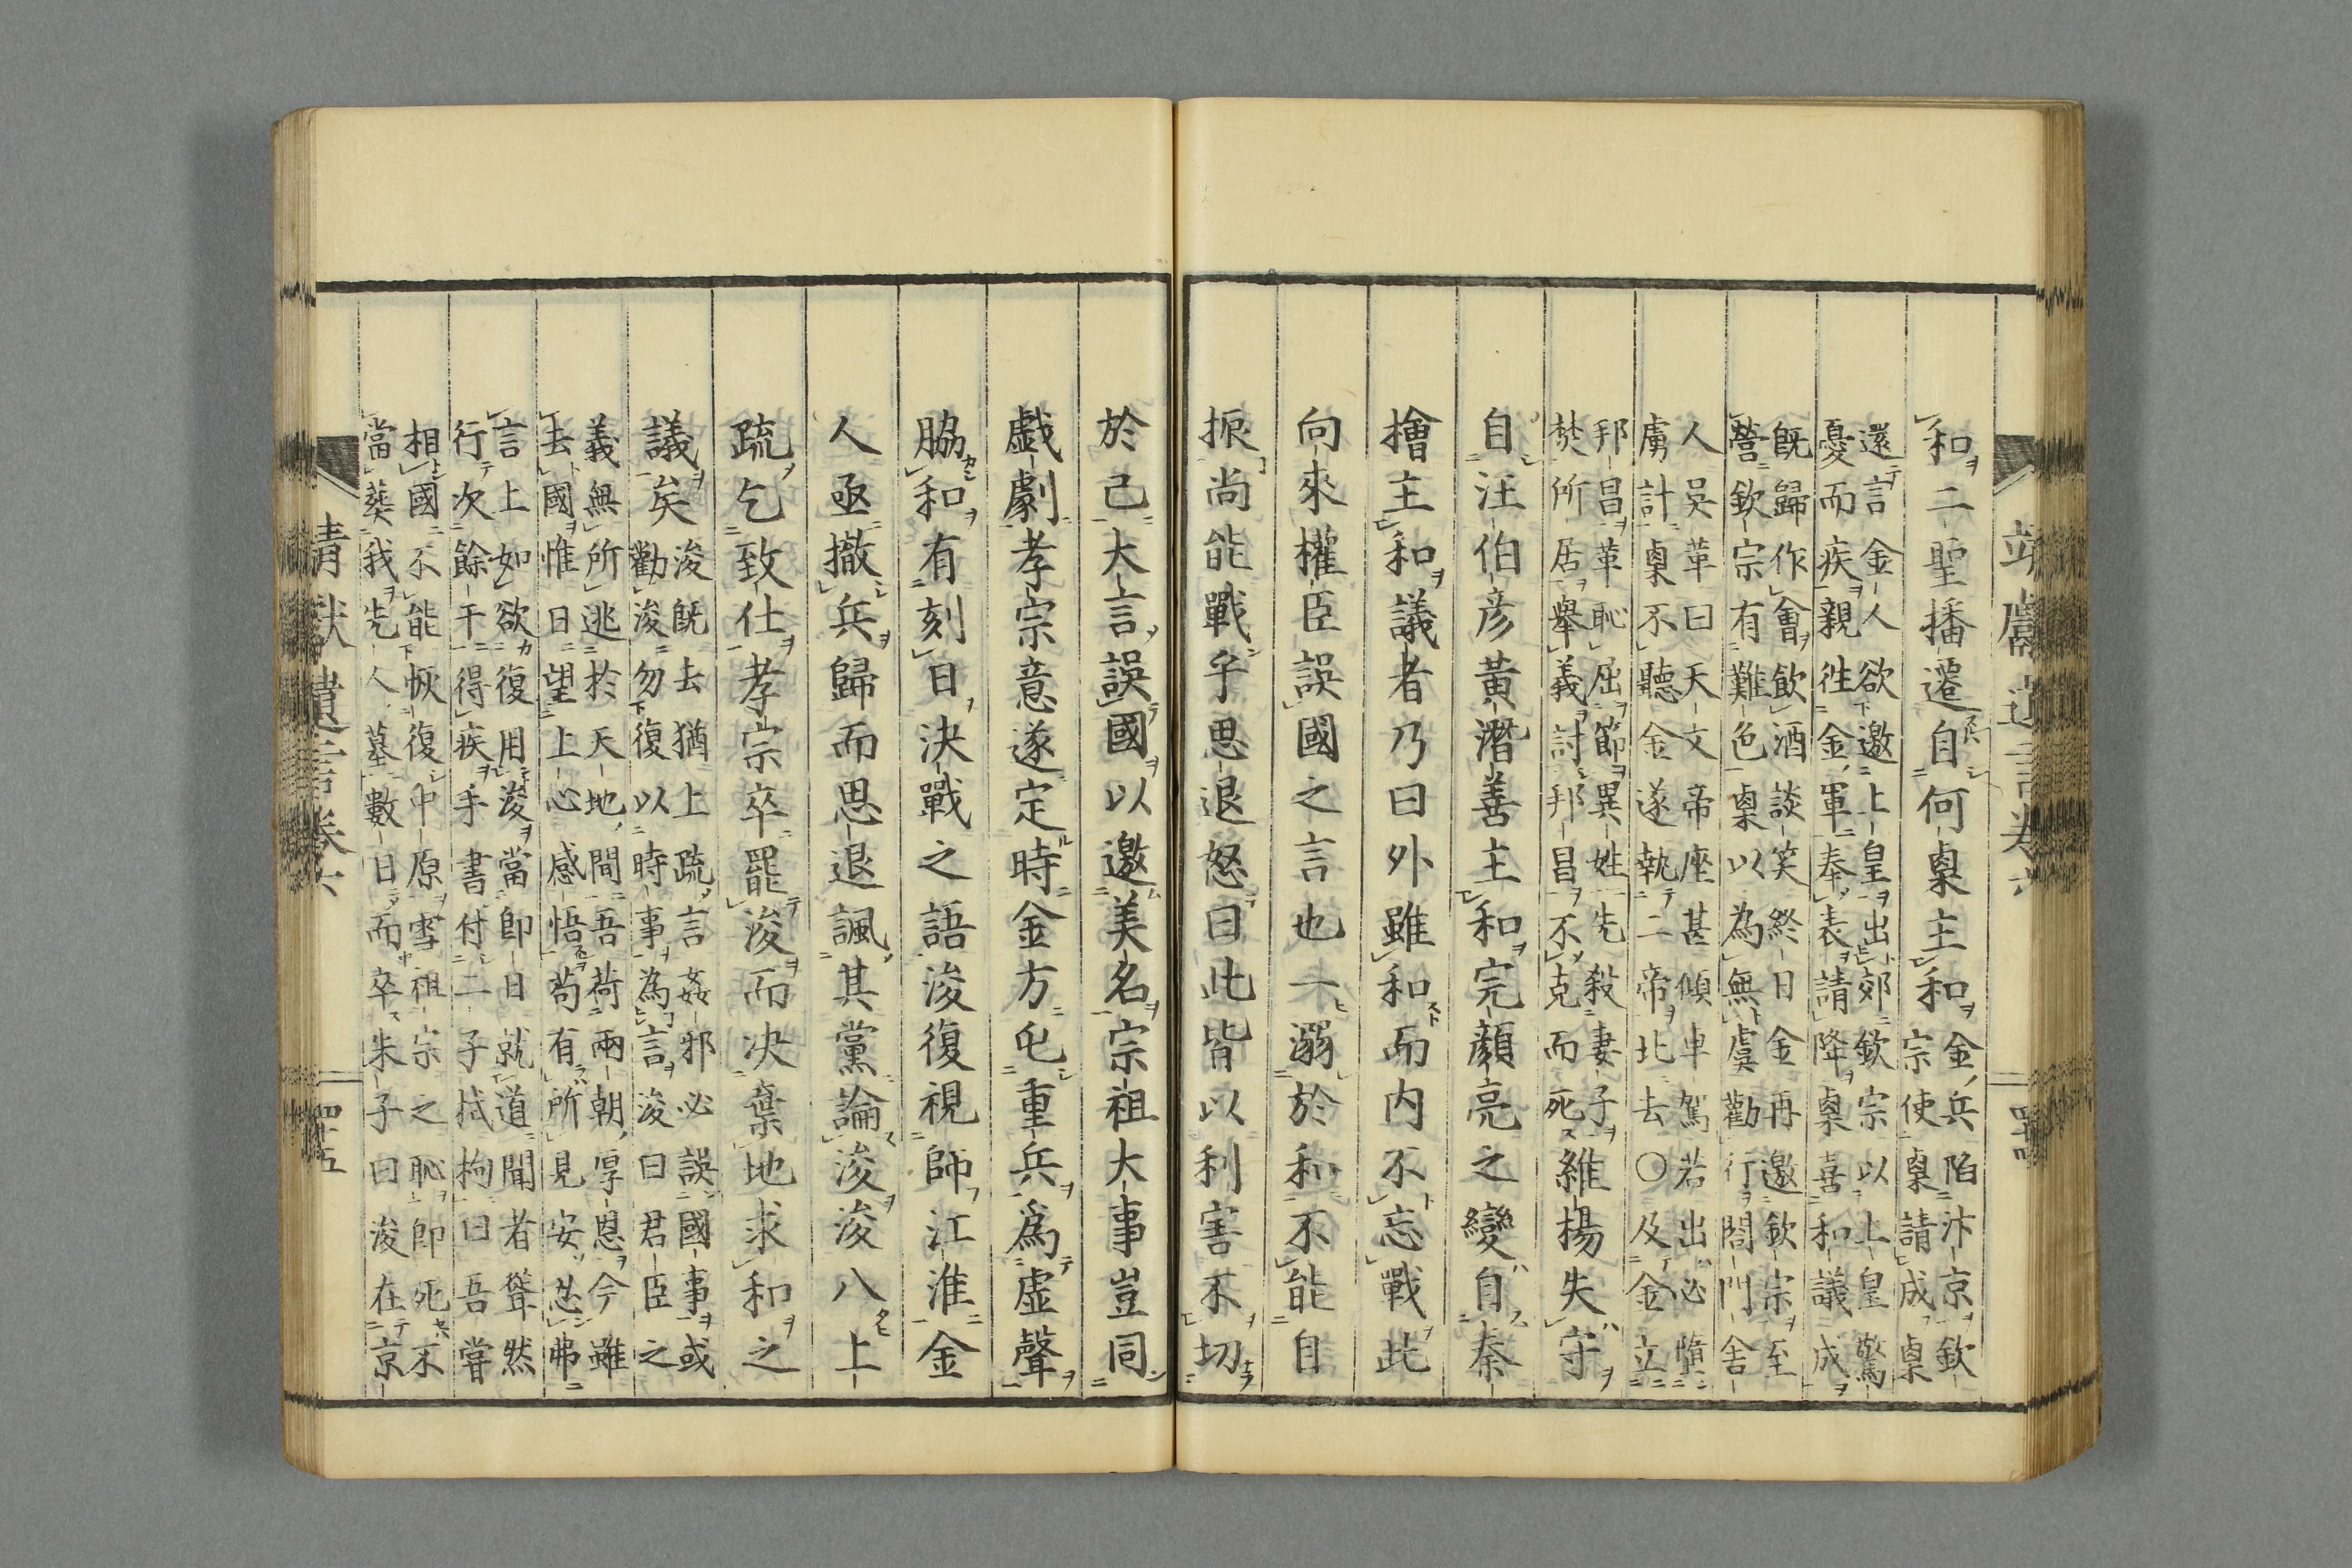 和二聖播遷自何㮚主和金兵陷汴京欽
宗使㮚請成㮚
還言金人欲邀上皇出郊欽宗以上皇驚
憂而疾親徃金軍奉表請降㮚喜和議成
旣歸作會飲酒談笑終日金再邀欽宗至
營欽宗有難色㮚以為無虞勸行閤門舎
人吳革曰天文帝座甚傾車駕若出必墮
虜計㮚不聽金遂執二帝北去〇及金立
邦昌革恥屈節異姓先殺妻子
焚所居舉義討邦昌不克而死維揚失守
自汪伯彦黄潛善主和完顔亮之變自秦
檜主和議者乃曰外雖和而内不忘戰此
向來權臣誤國之言也一溺於和不能自
振尚能戰乎思退怒曰此皆以利害不切
於己大言誤國以邀美名宗祖大事豈同
戯劇孝宗意遂定時金方屯重兵爲虚聲
脇和有刻日決戰之語浚復視師江淮金
人亟撤兵歸而思退諷其黨論浚浚八上
疏乞致仕孝宗卒罷浚而决棄地求和之
議矣浚旣去猶上疏言姦邪必誤國事或
勸浚勿復以時事為言浚曰君臣之
義無所逃於天地間吾荷兩朝厚恩今雖
去國惟日望上心感悟苟有所見安忍弗
言上如欲復用浚當卽日就道聞者聳然
行次餘干得疾手書付二子栻枸曰吾嘗
相國不能恢復中原雪祖宗之恥卽死不
當葬我先人墓數日而卒朱子曰浚在京
靖獻遺言卷六
四十五